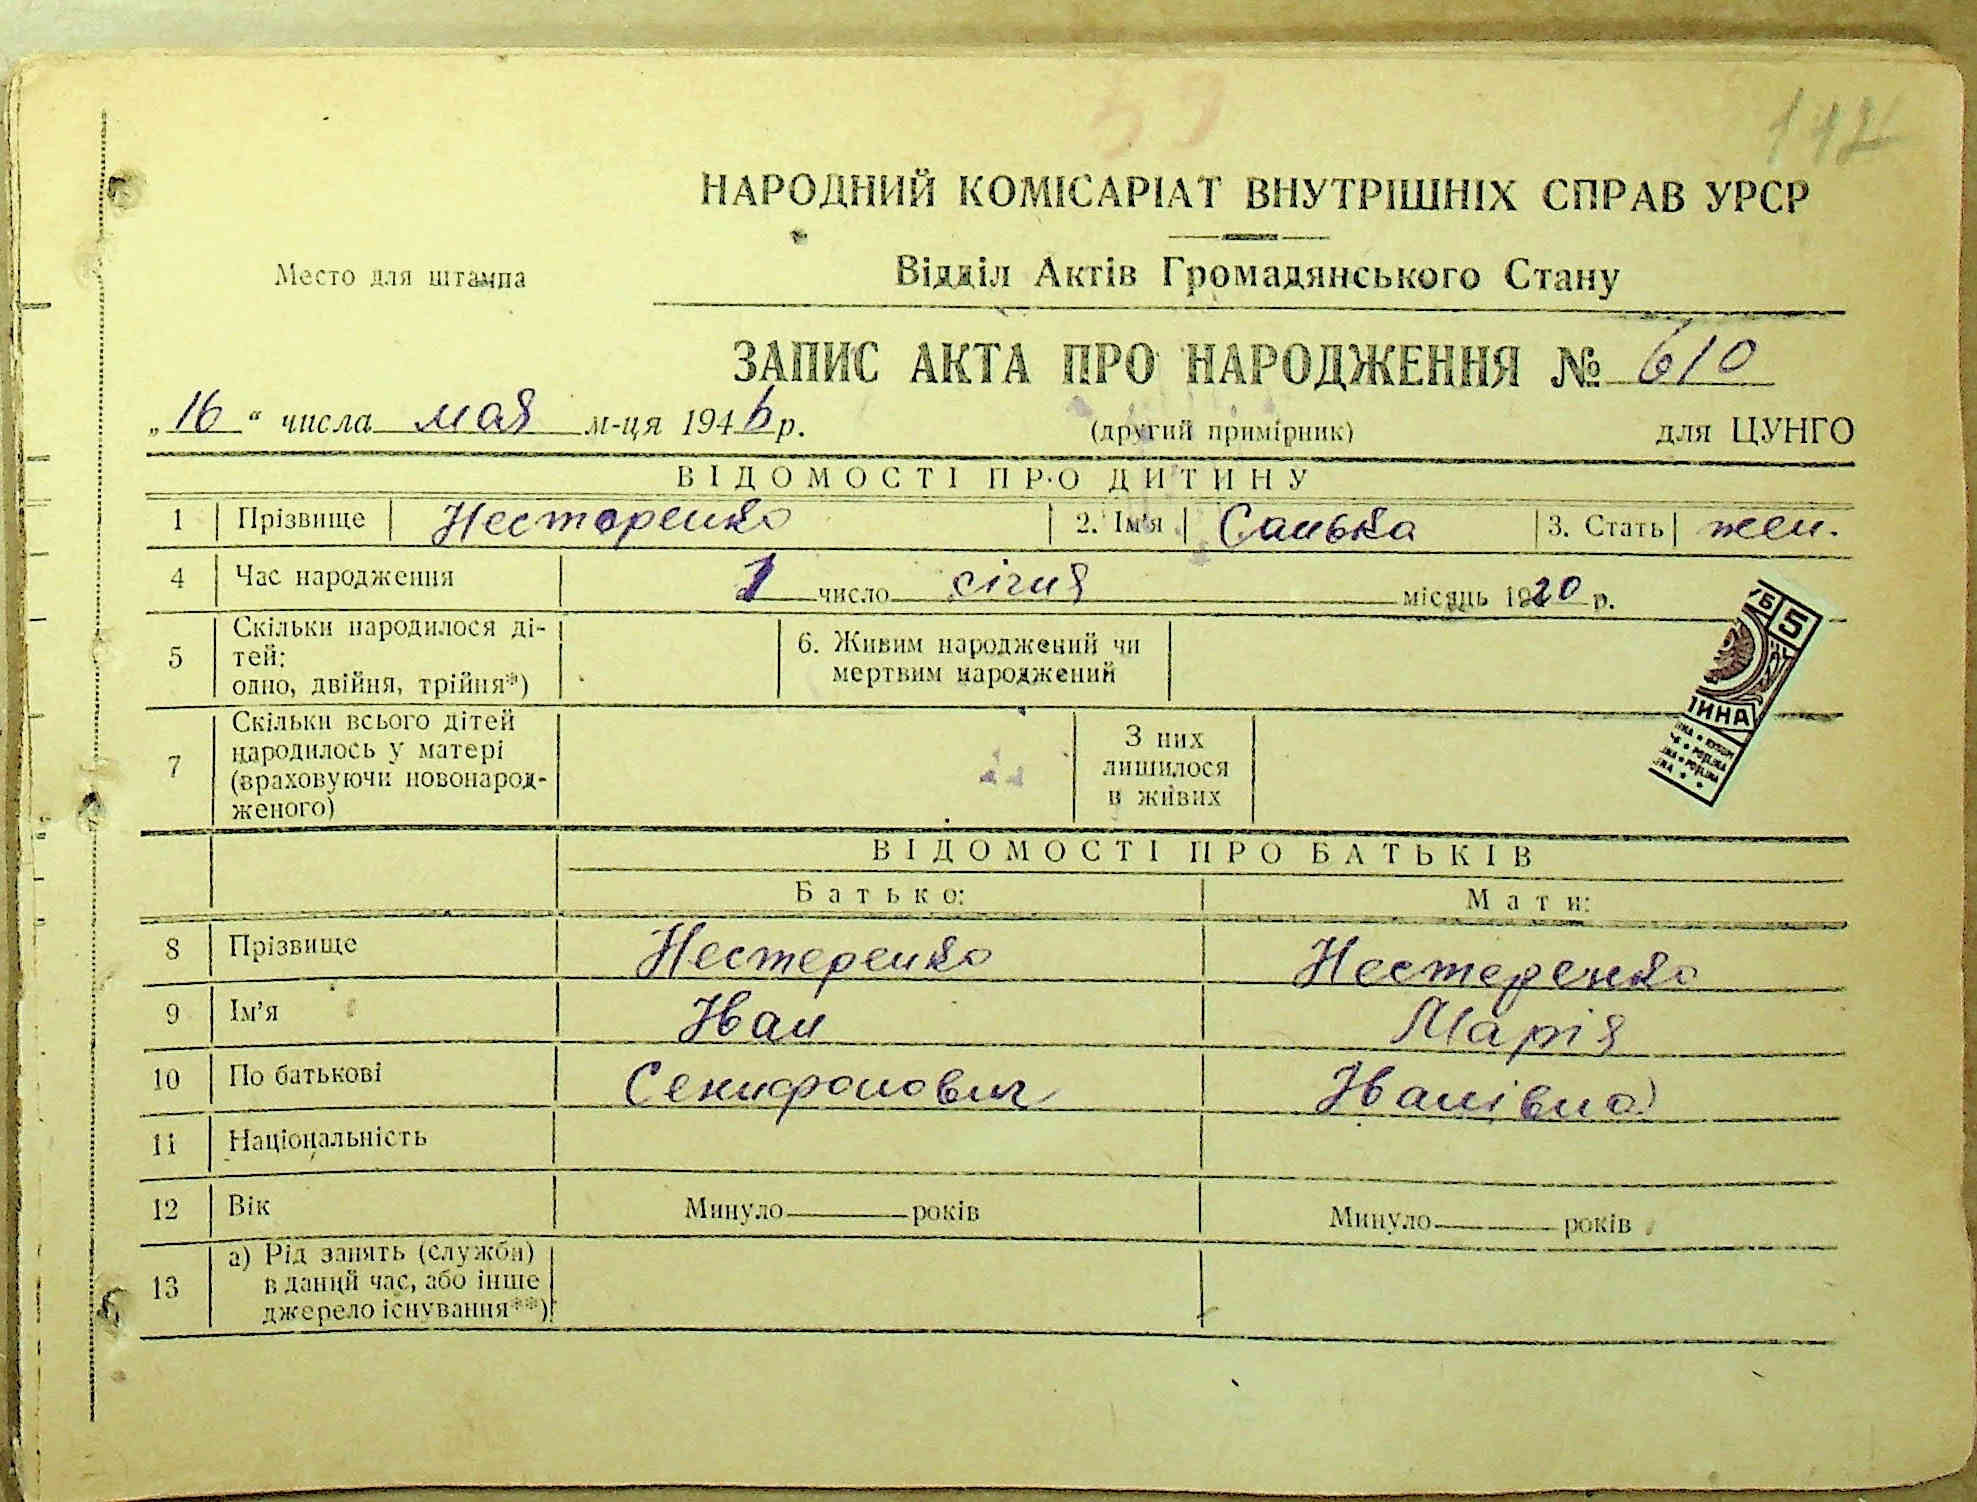 142
НАРОДНИЙ КОМІСАРІАТ ВНУТРІШНІХ СПРАВ УРСР
Место для штампа
Відділ Актів Громадянського Стану
ЗАПИС АКТА ПРО НАРОДЖЕННЯ № 610
„16“ числа мая м-ця 1946 р. (другий примірник) для ЦУНГО
ВІДОМОСТІ ПРО ДИТИНУ
1 Прізвище Нестеренко 2. Ім'я Санька 3. Стать жен.
4 Час народження 1 число січня місяць 1920 р.
5 Скільки народилося ді-
тей:
одно, двійня, трійня*)
6. Живим народжений чи
мертвим народжений
7 Скільки всього дітей
народилось у матері
(враховуючи новонарод-
женого)
З них
лишилося
в живих
5
ВІДОМОСТІ ПРО БАТЬКІВ
Батько: Мати:
8 Прізвище Нестеренко Нестеренко
9 Ім'я Іван Марія
10 По батькові Іванівна
11 Національність
12 Вік Минуло років Минуло років
13 а) Рід занять (служби)
в даний час, або інше
джерело існування**)